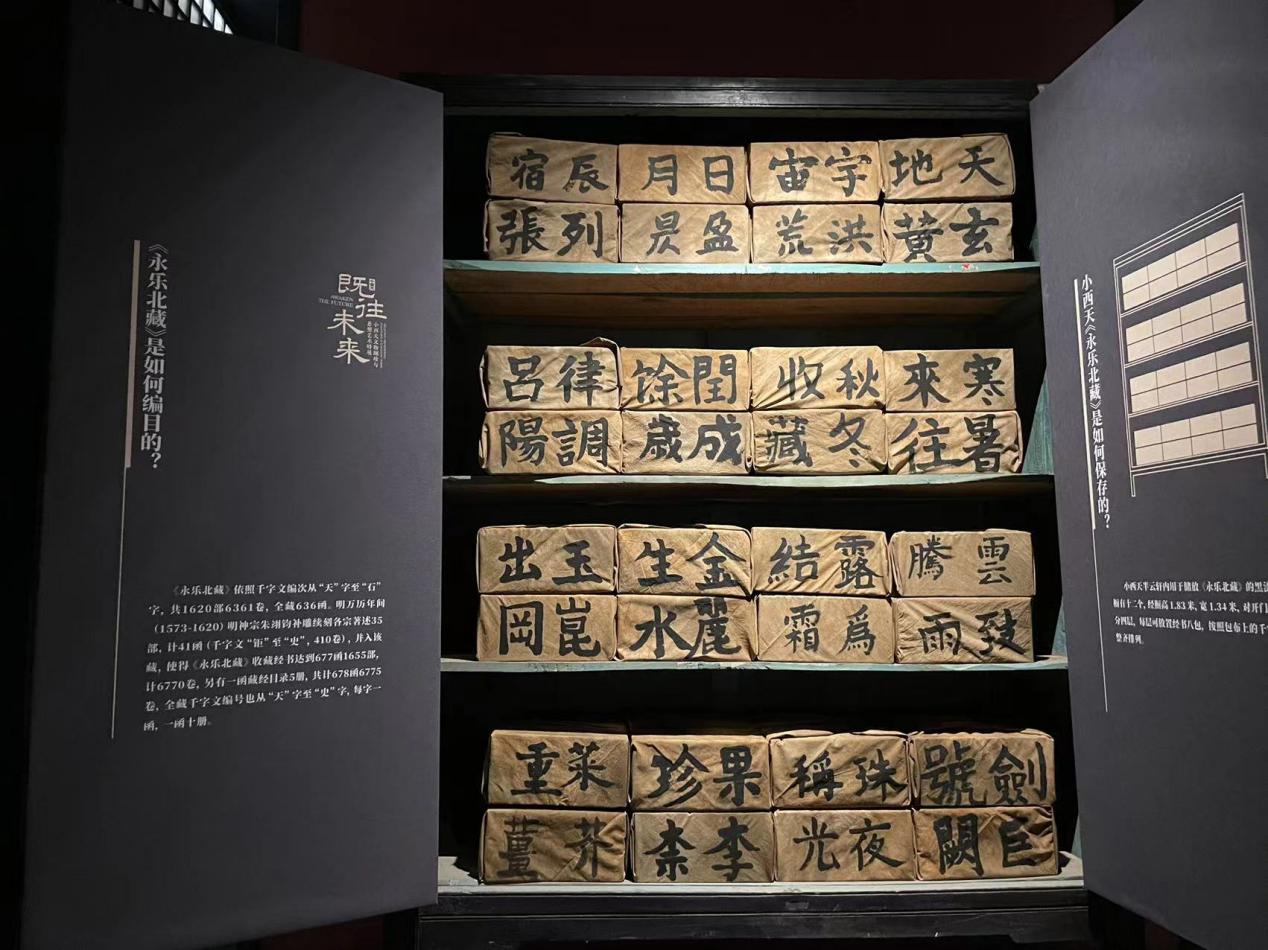 《永乐北藏》是如何编目的？
既往
未来
AWAKEN
THE FUTURE
悬塑艺术特展
《永乐北藏》依照千字文编次从“天”字至“石”
字，共1620部6361卷，全藏636函。明万历年间
（1573-1620）明神宗朱翊钧补雕续刻各宗著述35
部，计41函（千字文“钜”至“史”，410卷），并入该
藏，使得《永乐北藏》收藏经书达到677函1655部，
计6770卷，另有一函藏经目录5册，共计678函6775
卷，全藏千字文编号也从“天”字至“史”字，每字一
函，一函十册。
天地 宇宙 日月 辰宿
玄黃 洪荒 盈昃 列張
寒來 秋收 閏餘 律呂
暑往 冬藏 成歲 調陽
雲騰 露結 金生 玉出
致雨 爲霜 麗水 崑岡
劍號 珠稱 果珍 菜重
巨闕 夜光 李柰 芥薑
小西天《永乐北藏》是如何保存的？
小西天半云轩内用于储放《永乐北藏》的黑漆
橱有十二个，经橱高1.83米，宽1.34米，对开门
分四层，每层可放置经书八包，按照包布上的千
整齐排列。